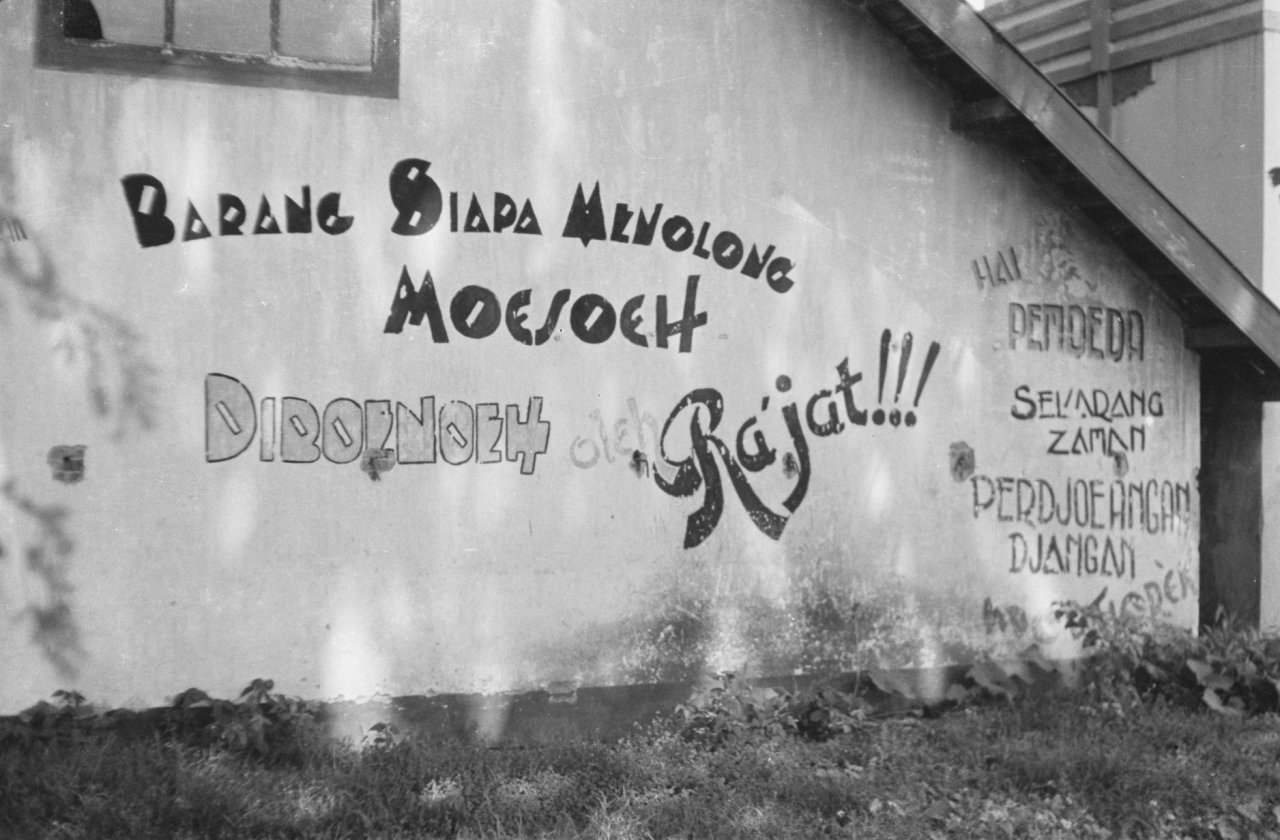 BARANG SIAPA MENOLONG
MOESOEH
DIBOENOEH oleh Ra'jat!!!
HAI
PEMOEDA
SEKARANG
ZAMAN
PERDJOEANGAN
DJANGAN